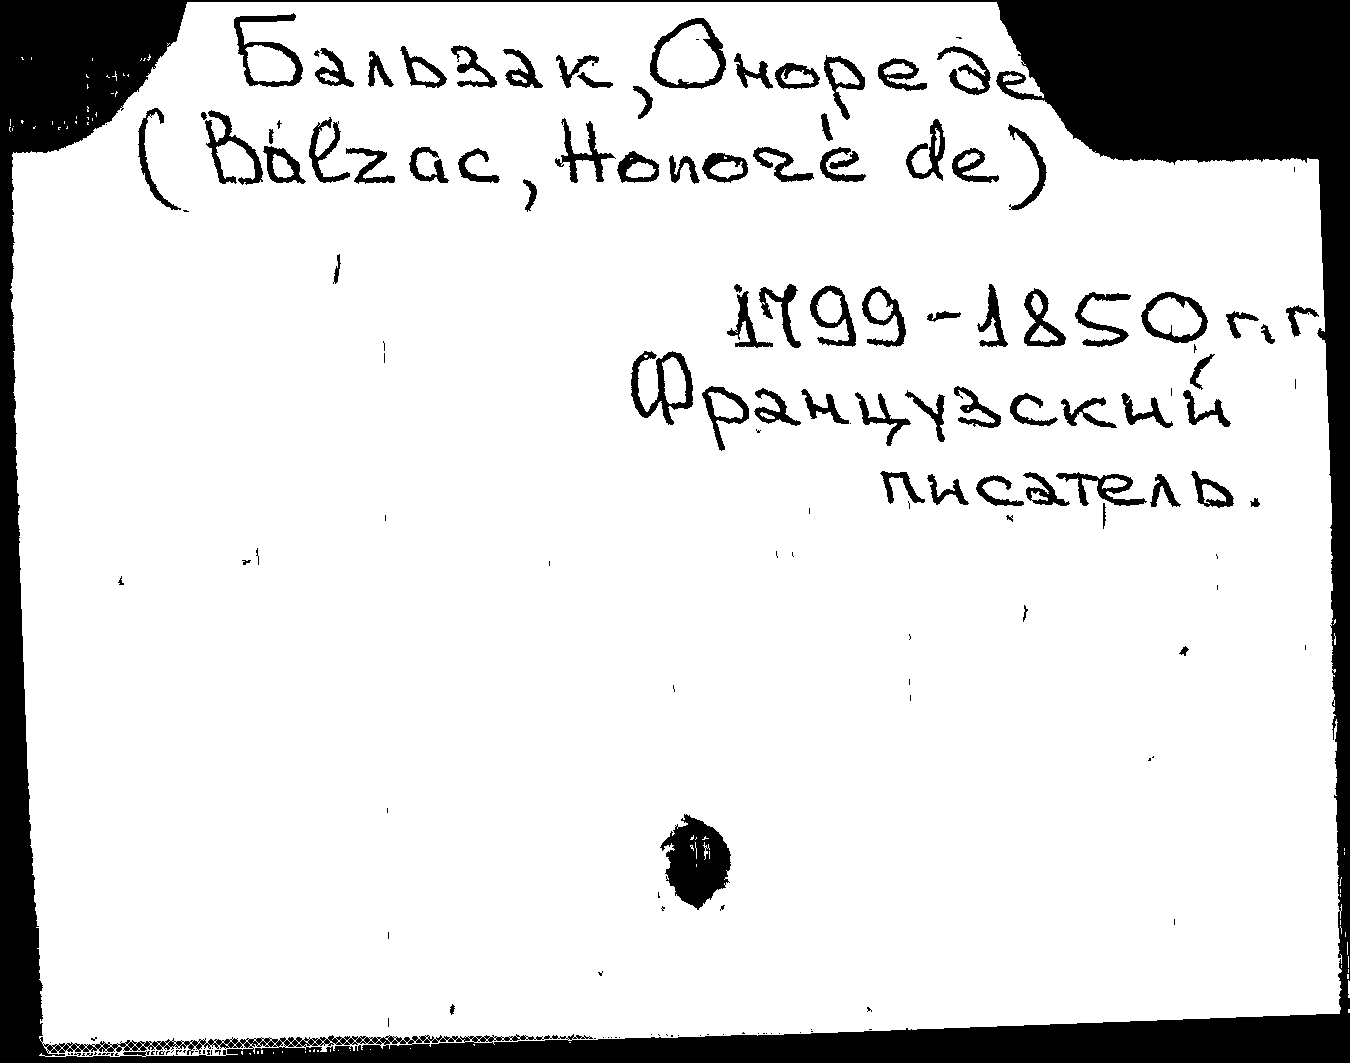 Бальзак, Оноре де
(Balzac, Honoré de)
1799-1850 г.г.
Французский
писатель.